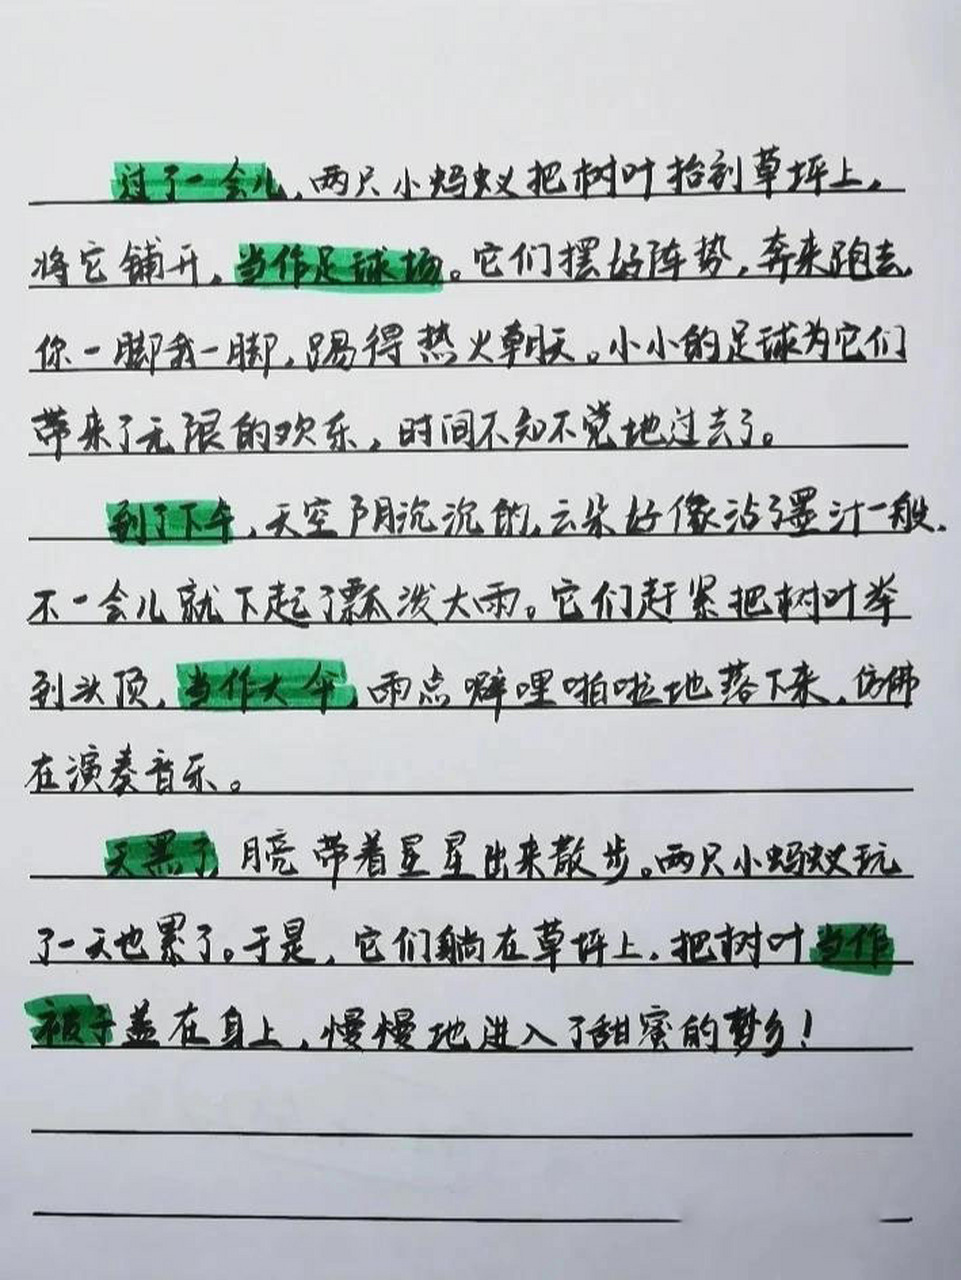 过了一会儿,两只小蚂蚁把树叶抬到草坪上,
将它铺开,当作足球场。它们摆好阵势,奔来跑去,
你一脚我一脚,踢得热火朝天。小小的足球为它们
带来了无限的欢乐,时间不知不觉地过去了。
到了下午,天空阴沉沉的,云朵好像沾了墨汁一般,
不一会儿就下起了瓢泼大雨。它们赶紧把树叶举
到头顶,当作大伞,雨点噼哩啪啦地落下来,仿佛
在演奏音乐。
天黑了,月亮带着星星出来散步。两只小蚂蚁玩
了一天也累了。于是,它们躺在草坪上,把树叶当作
被子盖在身上,慢慢地进入了甜蜜的梦乡!